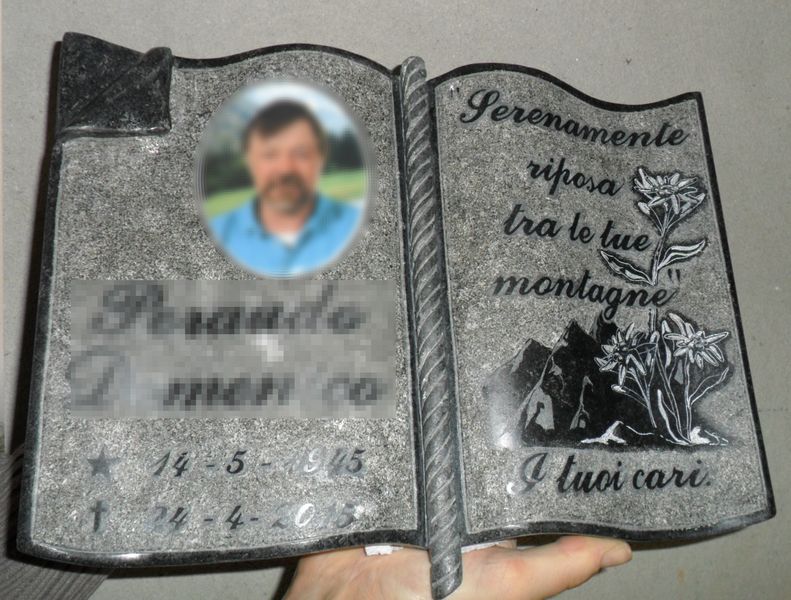 14 - 5 - 1945
24 - 4 - 2015
"Serenamente
riposa
tra le tue
montagne"
I tuoi cari.